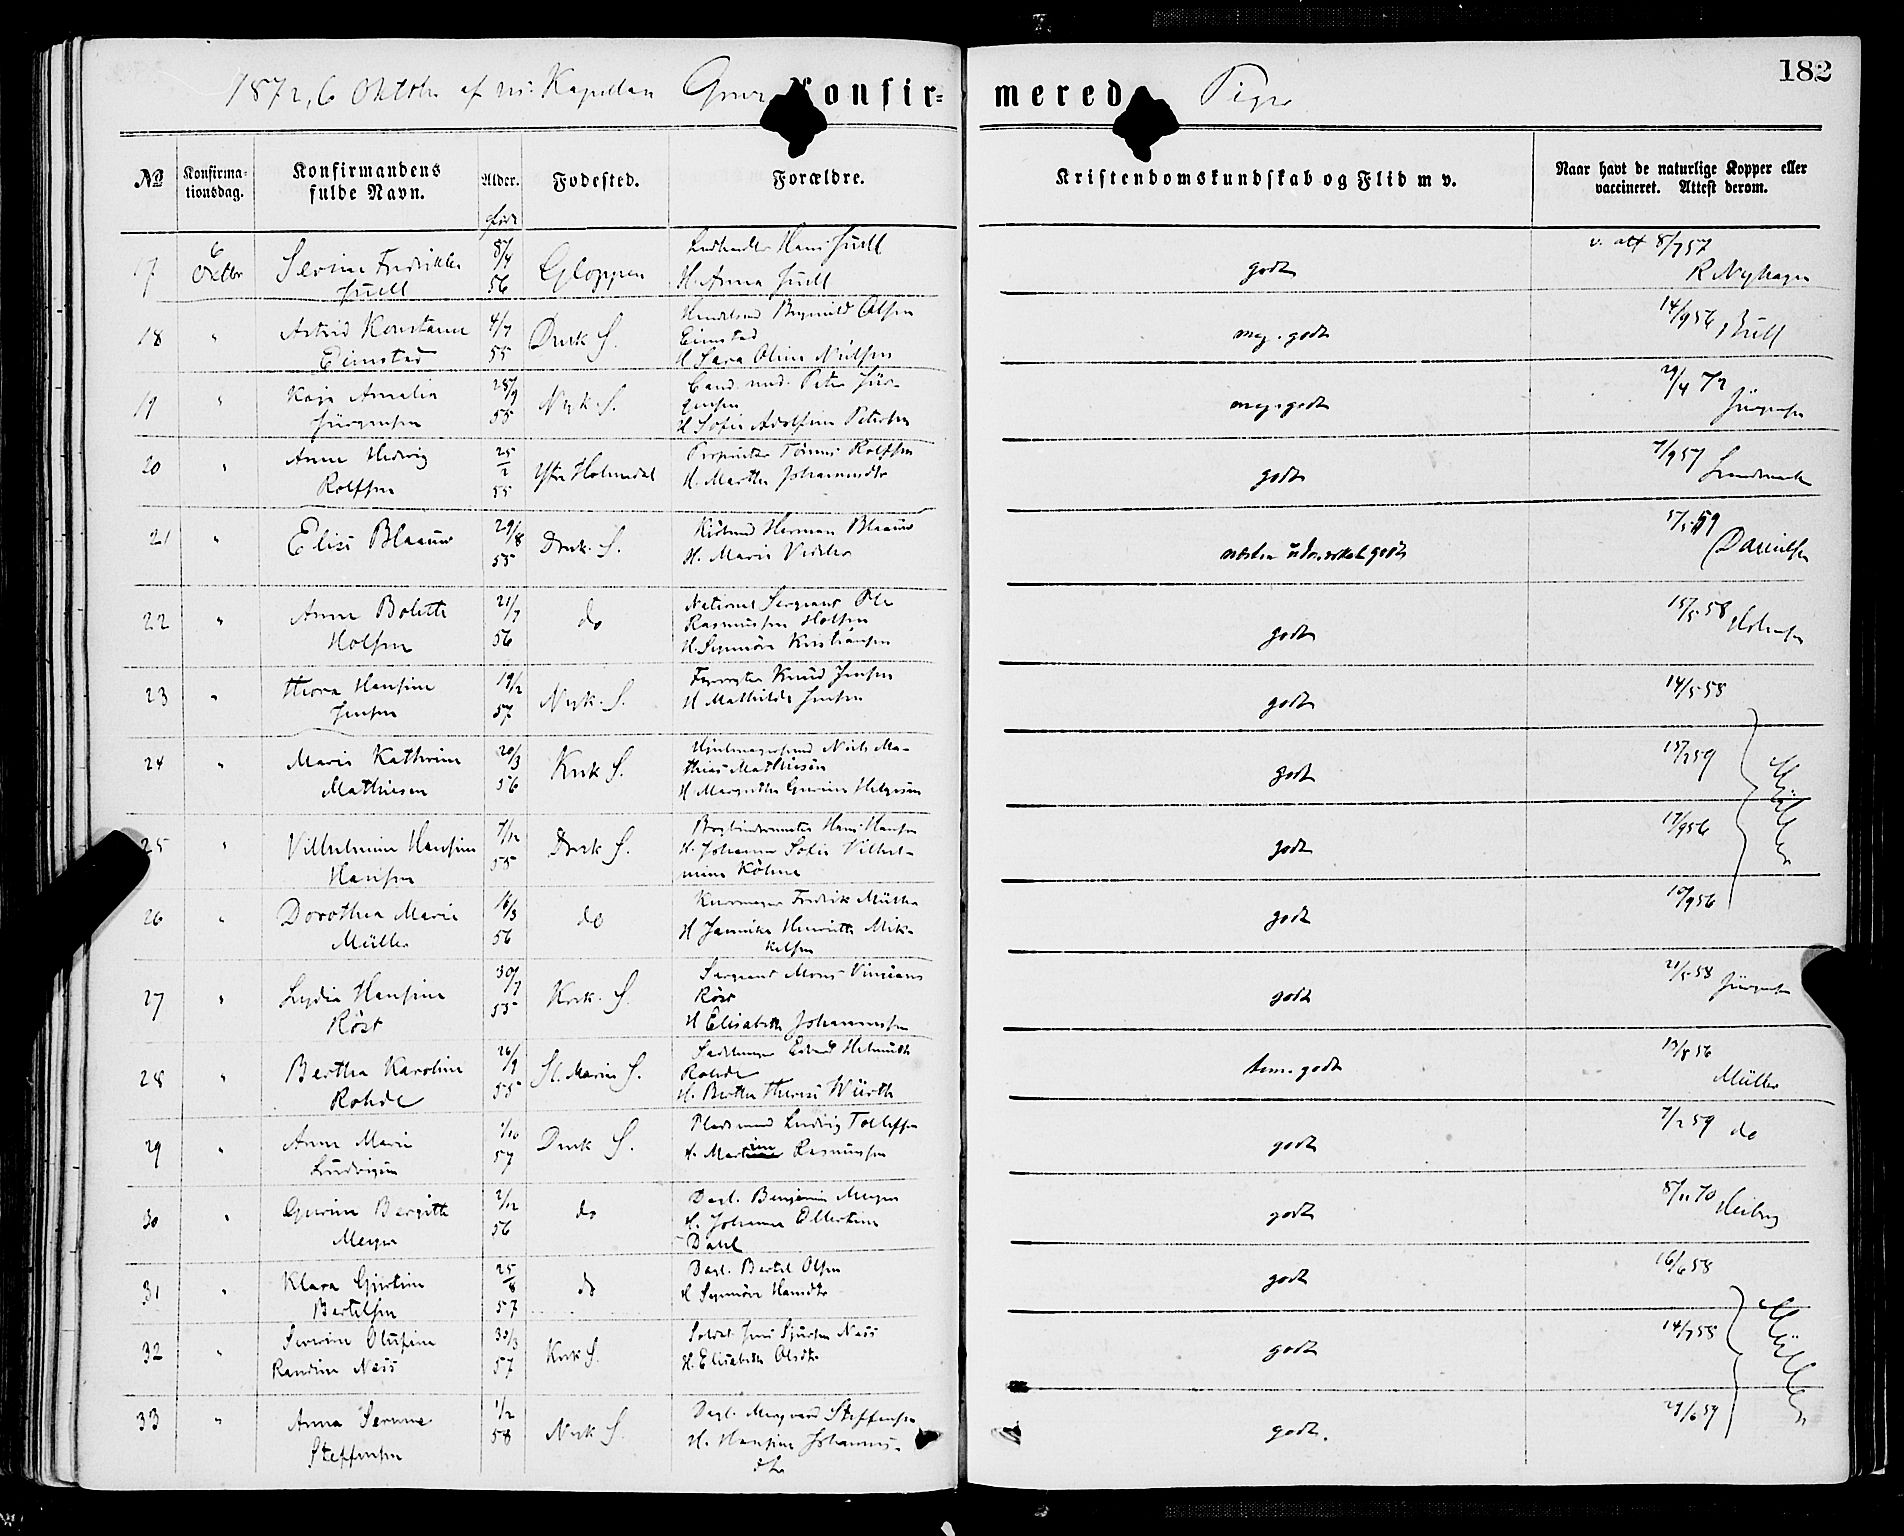 1872, 6 Oktobr af Kapellan Konfir= merede Piger 182
№ Konfirma-tionsdag. Konfirmandens fulde Navn. Alder. Fødested. Forældre. Kristendomskundskab og Flid m v. Naar havt de naturlige Kopper eller vaccineret. Attest derom.
født
17 6 Oktbr Sevrine Fredrikke Juell 8/4 56 Gloppen Hans Juell H. Anna Juell godt v. att 8/7 57 R Nyhagen
18 " Astrid Konstanse Eimstad 4/7 55 Dmk S. Brynild Olsen Eimstad H Sara Oline Nielsen meg. godt 14/9 56 Bull
19 " Kaja Amalia Jürgensen 28/9 55 Nyk. S. Cand. med. Peter Jürgensen H Sofie Adolfine Petersen meg. godt 29/4 72 Jürgensen
20 " Anne Hedvig Rolfsen 25/2 55 Ytre Holmedal Proprietær Tønnes Rolfsen H. Marthe Johannesdtr godt 7/9 57 Landmark
21 " Elise Blaauw 29/8 55 Dmk. S. Kjøbmd Herman Blaauw H. Marie godt 5/5 59 Danielsen
22 " Anne Bolette Holsen 21/7 56 do National Sergeant Ole Rasmussen Holsen H. Synnøve Kristiansen godt 15/5 58
23 " Thora Hansine Jensen 19/2 57 Nyk. S. Knud Jensen H Mathilde Jensen godt 14/5 58
24 " Marie Kathrine Mathiesen 20/3 56 Krk S. Niels Mathias Mathiesen H Margrethe Gurine Helgesen godt 15/2 59
25 " Vilhelmine Hansine Hansen 7/12 55 Dmk S. Bogbindermester Hans Hansen H. Johanne Sofie Vilhelmine Köhne godt 17/9 56 Müller
26 " Dorothea Marie Müller 16/3 56 do Fredrik Müller H Jannika Henriette Mikkelsen godt 10/9 56
27 " Lydia Hansine Röst 30/7 55 Krk. S. Sergeant Mons Vincians Röst H Elisabeth Johannessen godt 21/5 58 Jürgensen
28 " Bertha Karoline Rohde 26/9 55 St. Marie S. Sadelmager Edvard Helmuth Rohde H. Berthe Therese Würth tem. godt 13/8 56 Müller
29 " Anne Marie Ludvigsen 1/10 57 Dmk S. Pladsmand Ludvig Tollefsen H. Martine Rasmussen godt 7/2 59 do
30 " Gurine Bergitte Meyer 2/12 56 do Dagl. Benjamin Meyer H. Johanne Ellertine Dahl godt 8/11 70 Heiberg
31 " Klara Gjertine Bertelsen 25/8 57 do Dagl. Bertel Olsen H Synnöve Hansdtr godt 16/6 58
32 " Severine Olufine Randine Næss 30/3 57 Krk S. Soldat Jens Sjursen Næss H. Elisabeth Olsdtr godt 14/7 58 Müller
33 " Anna Serene Steffensen 1/2 58 Nyk S. Dagl. Steffensen H. Hansine Johannesdtr godt. 29/6 59